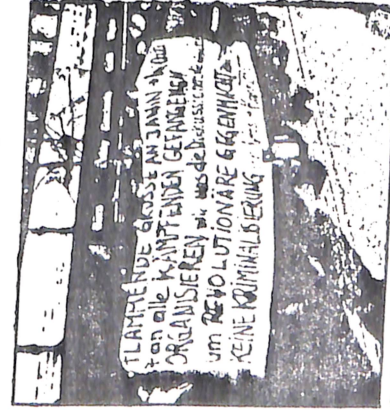 FLAMMENDE GRÜSSE AN JANIN
+ an alle KÄMPFENDEN GEFANGENEN
ORGANISIEREN wir uns die Diskussion
um REVOLUTIONÄRE GEGENMACHT
KEINE KRIMINALISIERUNG